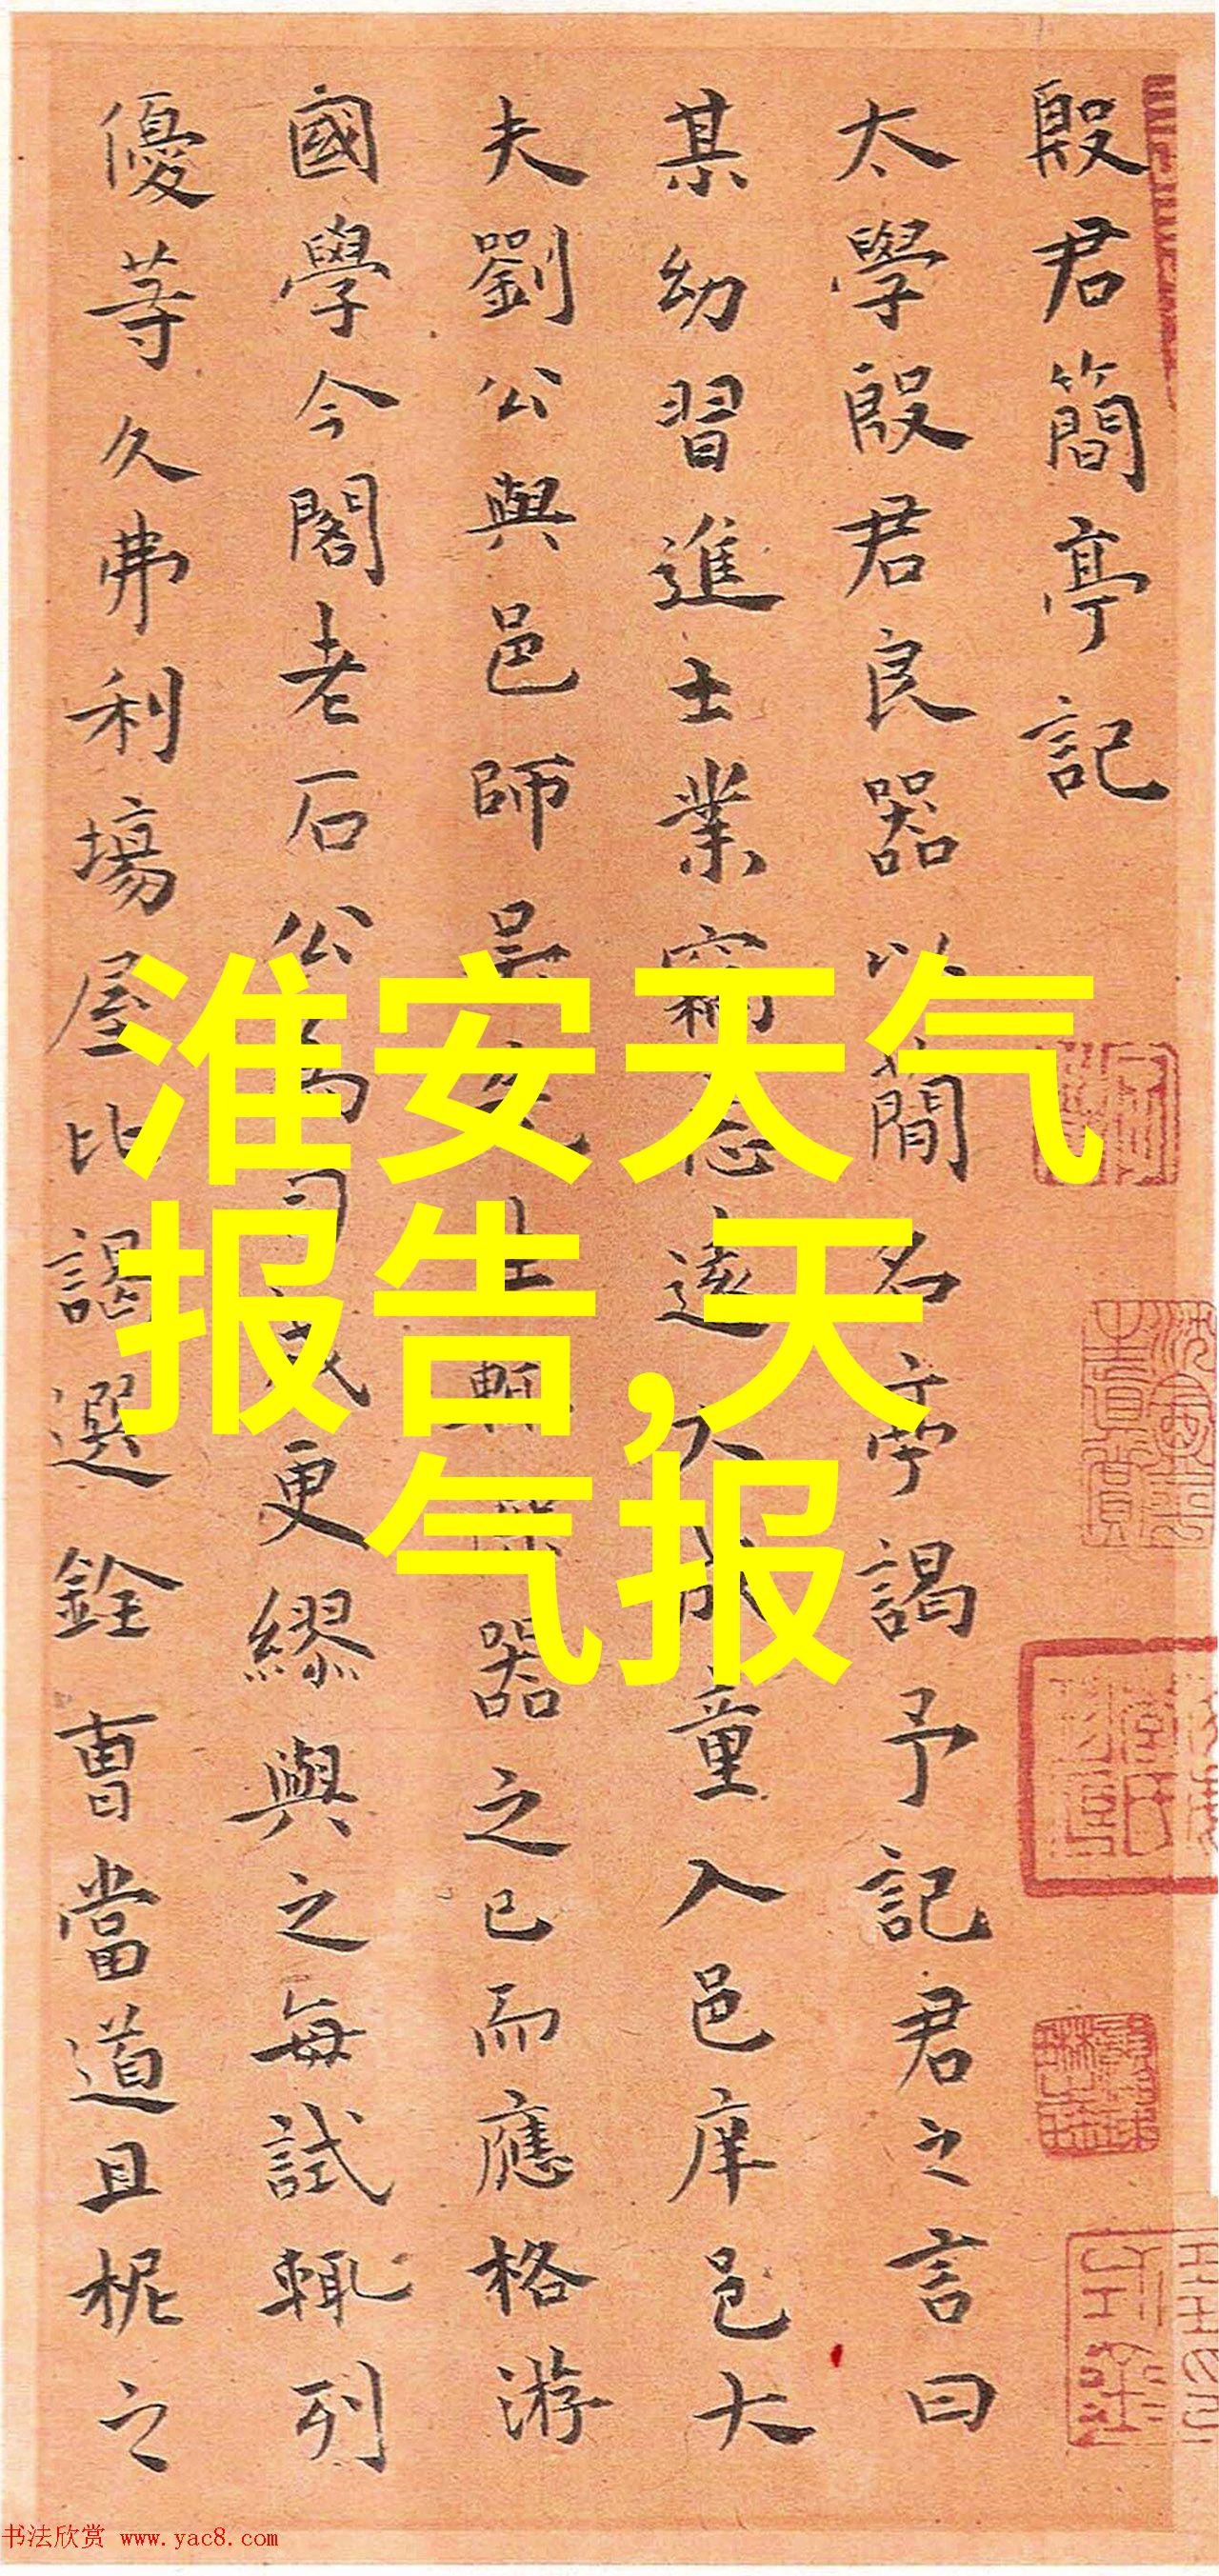 殷君簡亭記
太學殷君良器以簡名亭謁予記君之言曰
某幼習進士業竊遠大成童入邑庠邑大
夫劉公與邑師吳生輒器之已而應格游
國學今閣老石公為司成更繆與之每試輒列
優等久弗利場屋比謁選銓曹當道且柅之
淮安天气
报告,天
气报
书法欣赏 www.yac8.com